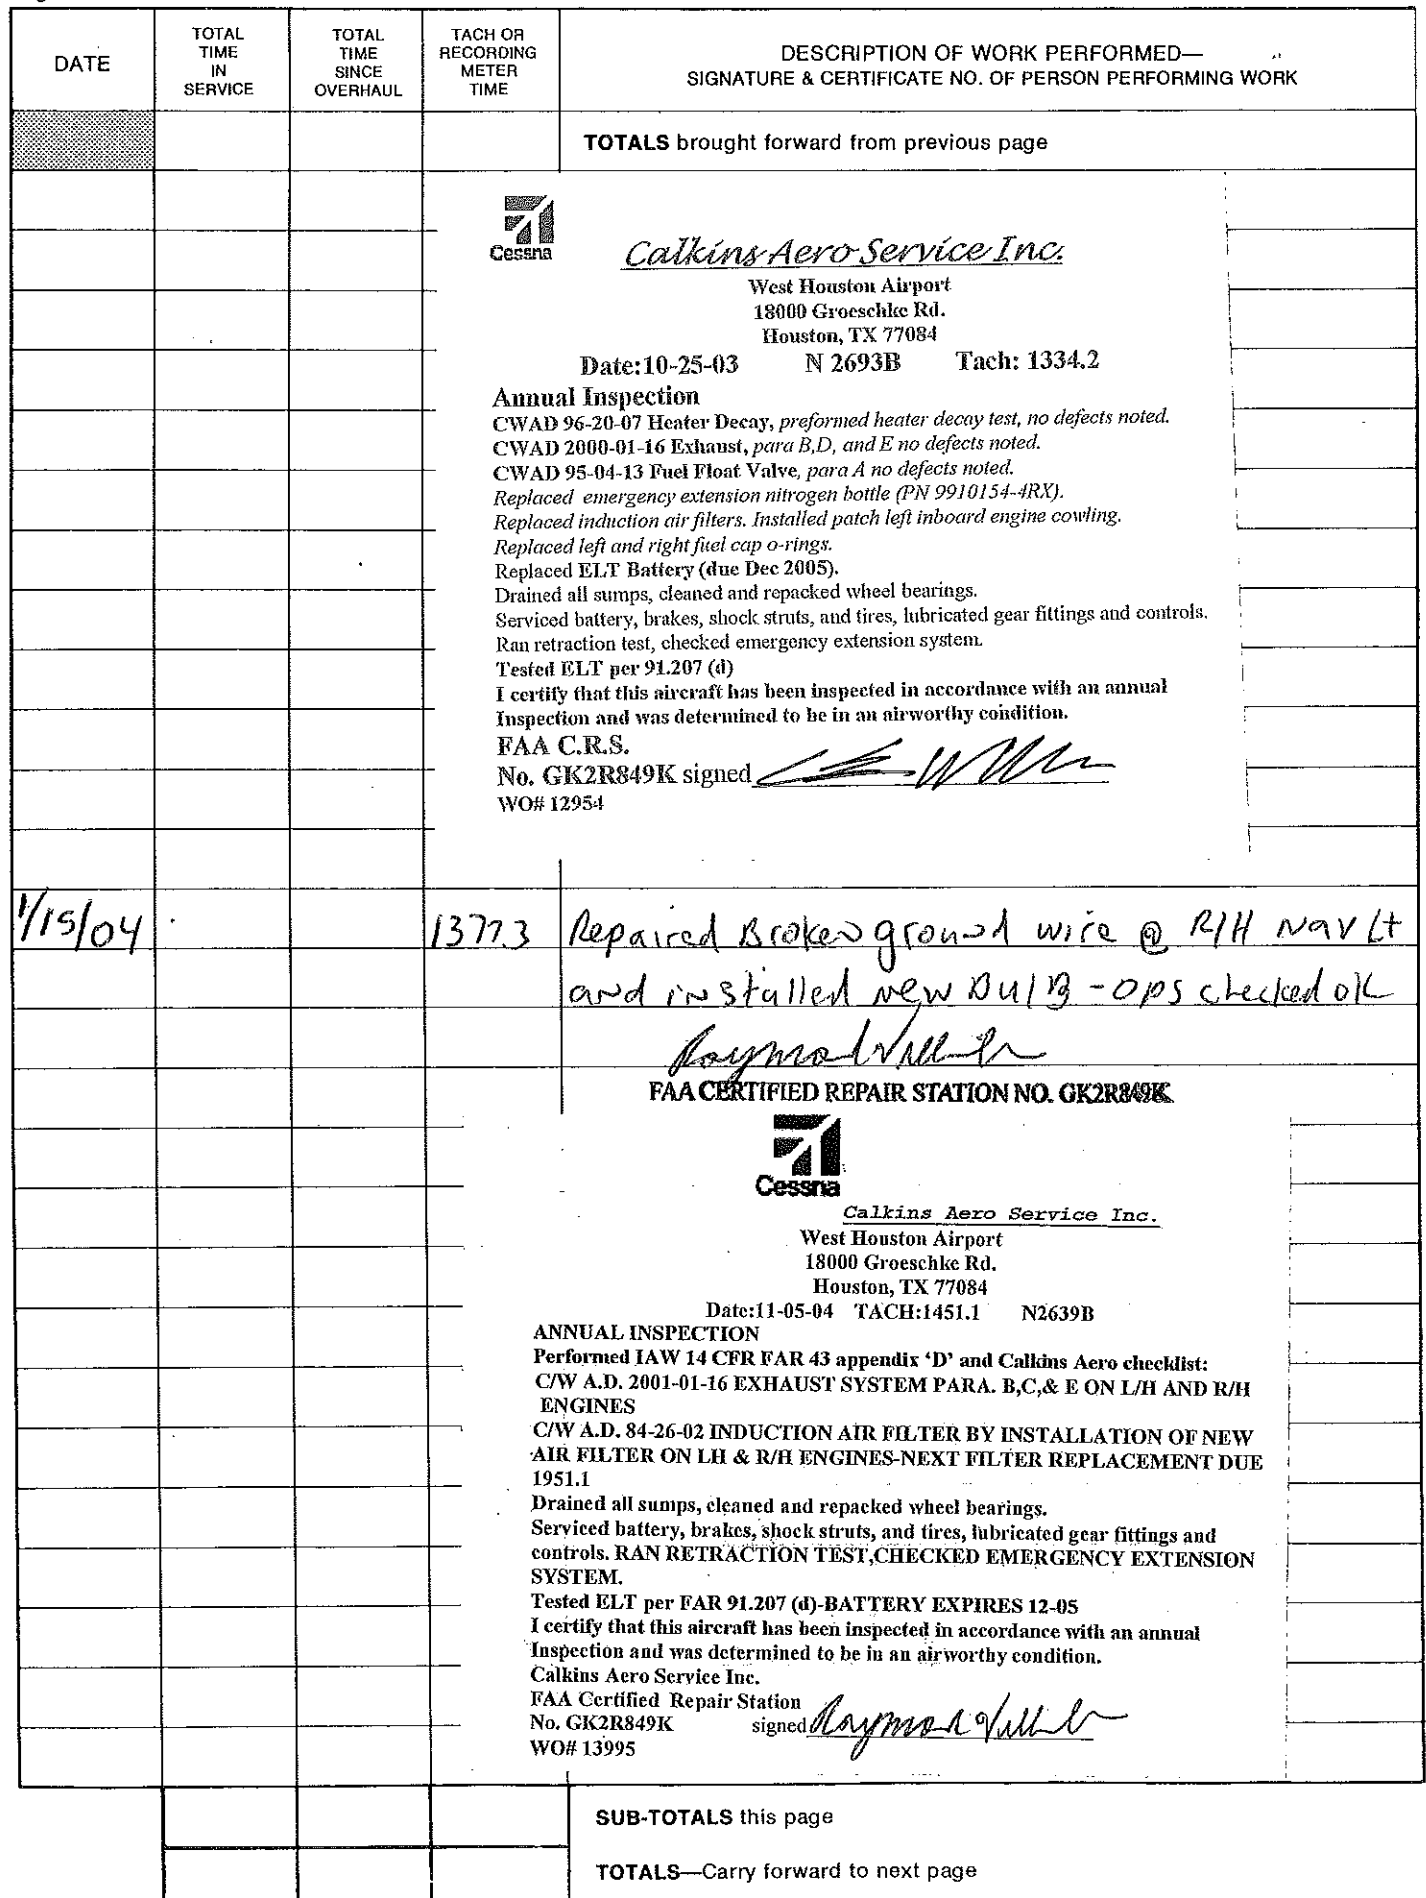 DATE
TOTAL TIME IN SERVICE
TOTAL TIME SINCE OVERHAUL
TACH OR RECORDING METER TIME
DESCRIPTION OF WORK PERFORMED—
SIGNATURE & CERTIFICATE NO. OF PERSON PERFORMING WORK
TOTALS brought forward from previous page
Cessna
Calkins Aero Service Inc.
West Houston Airport
18000 Groeschke Rd.
Houston, TX 77084
Date:10-25-03 N 2693B Tach: 1334.2
Annual Inspection
CWAD 96-20-07 Heater Decay, preformed heater decay test, no defects noted.
CWAD 2000-01-16 Exhaust, para B,D, and E no defects noted.
CWAD 95-04-13 Fuel Float Valve, para A no defects noted.
Replaced emergency extension nitrogen bottle (PN 9910154-4RX).
Replaced induction air filters. Installed patch left inboard engine cowling.
Replaced left and right fuel cap o-rings.
Replaced ELT Battery (due Dec 2005).
Drained all sumps, cleaned and repacked wheel bearings.
Serviced battery, brakes, shock struts, and tires, lubricated gear fittings and controls.
Ran retraction test, checked emergency extension system.
Tested ELT per 91.207 (d)
I certify that this aircraft has been inspected in accordance with an annual
Inspection and was determined to be in an airworthy condition.
FAA C.R.S.
No. GK2R849K signed
WO# 12954
1/15/04 1377.3 Repaired Broken ground wire @ R/H Nav Lt
and installed new Bulb - ops checked ok
FAA CERTIFIED REPAIR STATION NO. GK2R849K
Cessna
Calkins Aero Service Inc.
West Houston Airport
18000 Groeschke Rd.
Houston, TX 77084
Date:11-05-04 TACH:1451.1 N2639B
ANNUAL INSPECTION
Performed IAW 14 CFR FAR 43 appendix 'D' and Calkins Aero checklist:
C/W A.D. 2001-01-16 EXHAUST SYSTEM PARA. B,C,& E ON L/H AND R/H
ENGINES
C/W A.D. 84-26-02 INDUCTION AIR FILTER BY INSTALLATION OF NEW
AIR FILTER ON LH & R/H ENGINES-NEXT FILTER REPLACEMENT DUE
1951.1
Drained all sumps, cleaned and repacked wheel bearings.
Serviced battery, brakes, shock struts, and tires, lubricated gear fittings and
controls. RAN RETRACTION TEST,CHECKED EMERGENCY EXTENSION
SYSTEM.
Tested ELT per FAR 91.207 (d)-BATTERY EXPIRES 12-05
I certify that this aircraft has been inspected in accordance with an annual
Inspection and was determined to be in an airworthy condition.
Calkins Aero Service Inc.
FAA Certified Repair Station
No. GK2R849K signed
WO# 13995
SUB-TOTALS this page
TOTALS—Carry forward to next page